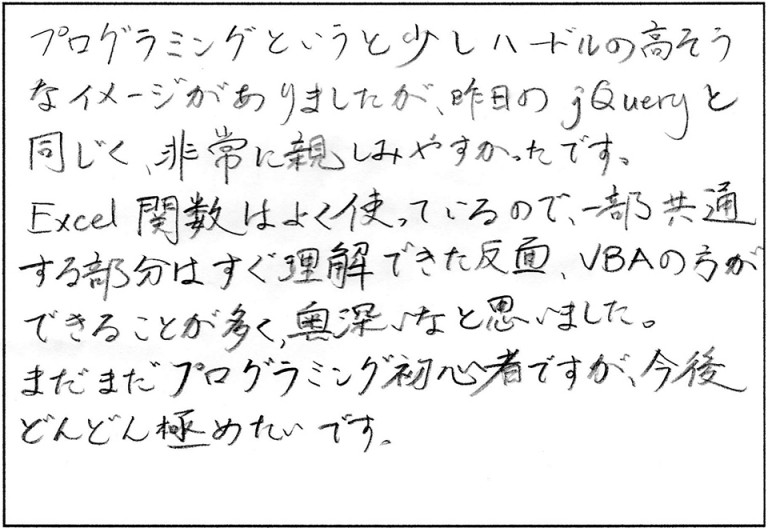 プログラミングというと少しハードルの高そう
なイメージがありましたが、昨日のjQueryと
同じく、非常に親しみやすかったです。
Excel関数はよく使っているので、一部共通
する部分はすぐ理解できた反面、VBAの方が
できることが多く、奥深いなと思いました。
まだまだプログラミング初心者ですが、今後
どんどん極めたいです。